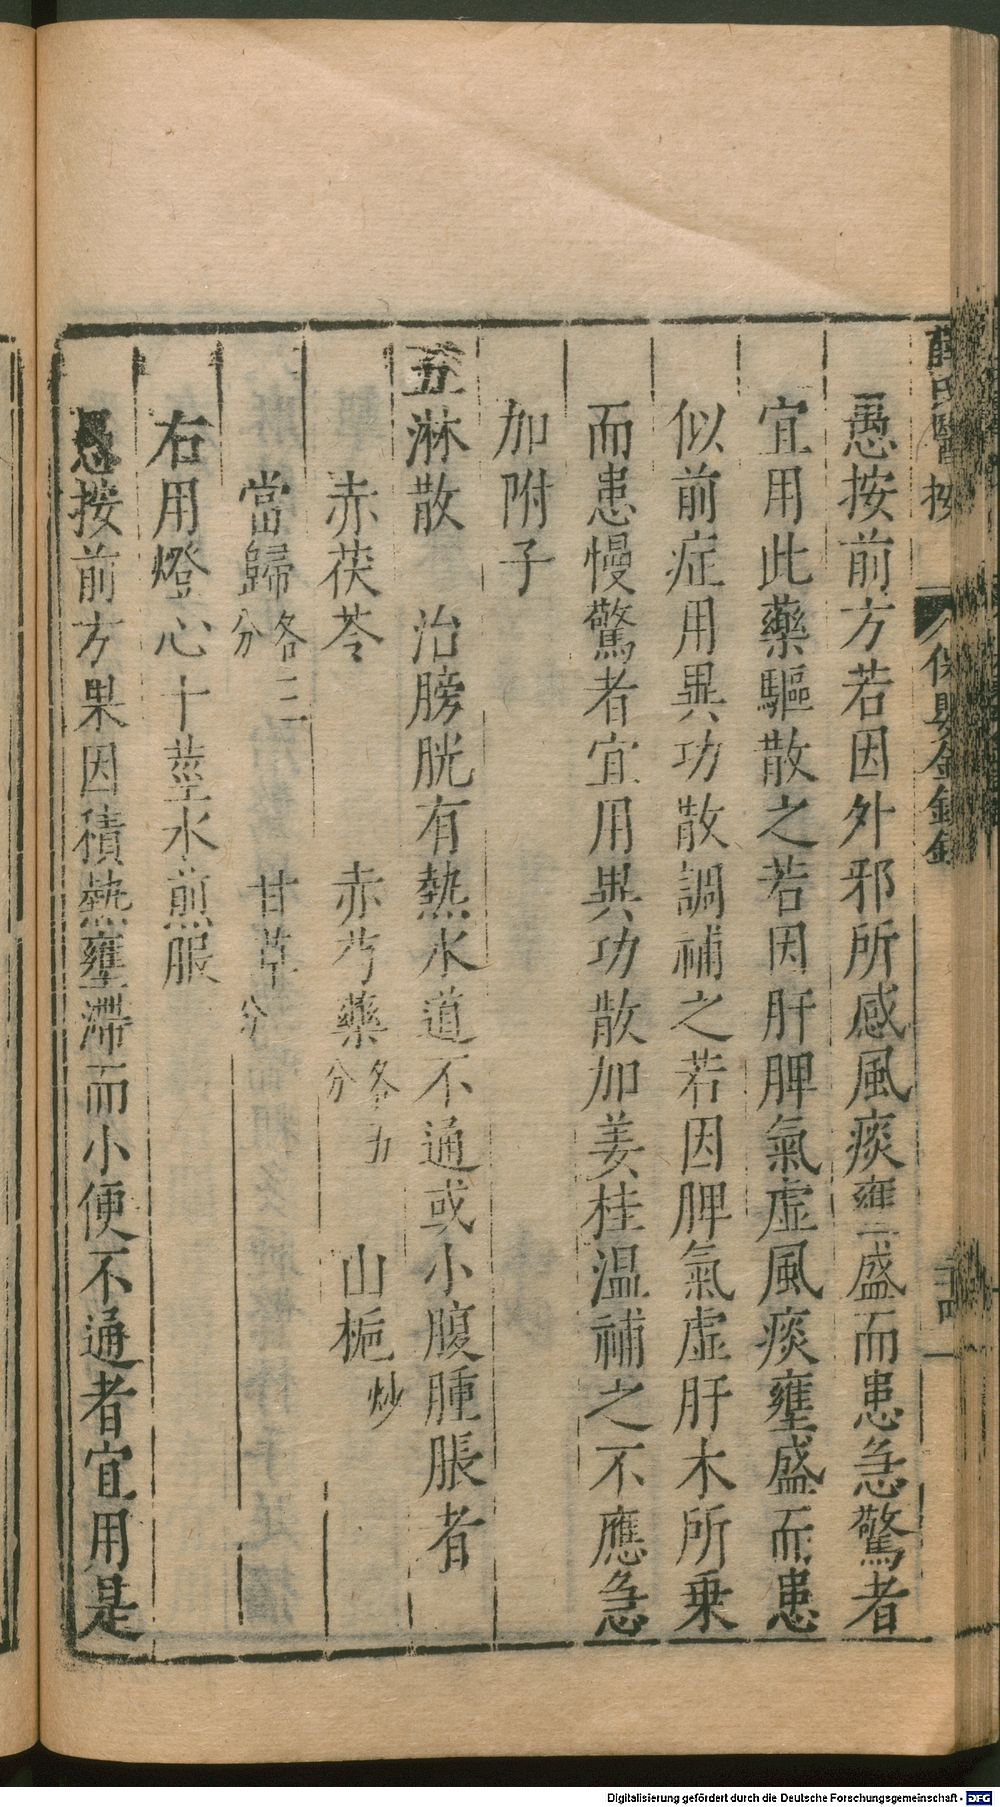 薛氏醫按 保嬰金鏡錄
愚按前方若因外邪所感風痰壅盛而患急驚者
宜用此藥驅散之若因肝脾氣虛風痰壅盛而患
似前症用異功散調補之若因脾氣虛肝木所乗
而患慢驚者宜用異功散加姜桂温補之不應急
加附子
五淋散 治膀胱有熱水道不通或小腹腫脹者
赤茯苓 赤芍藥各五分 山梔炒
當歸各三分 甘草分
右用燈心十莖水煎服
愚按前方果因積熱壅滯而小便不通者宜用是
Digitalisierung gefördert durch die Deutsche Forschungsgemeinschaft - DFG